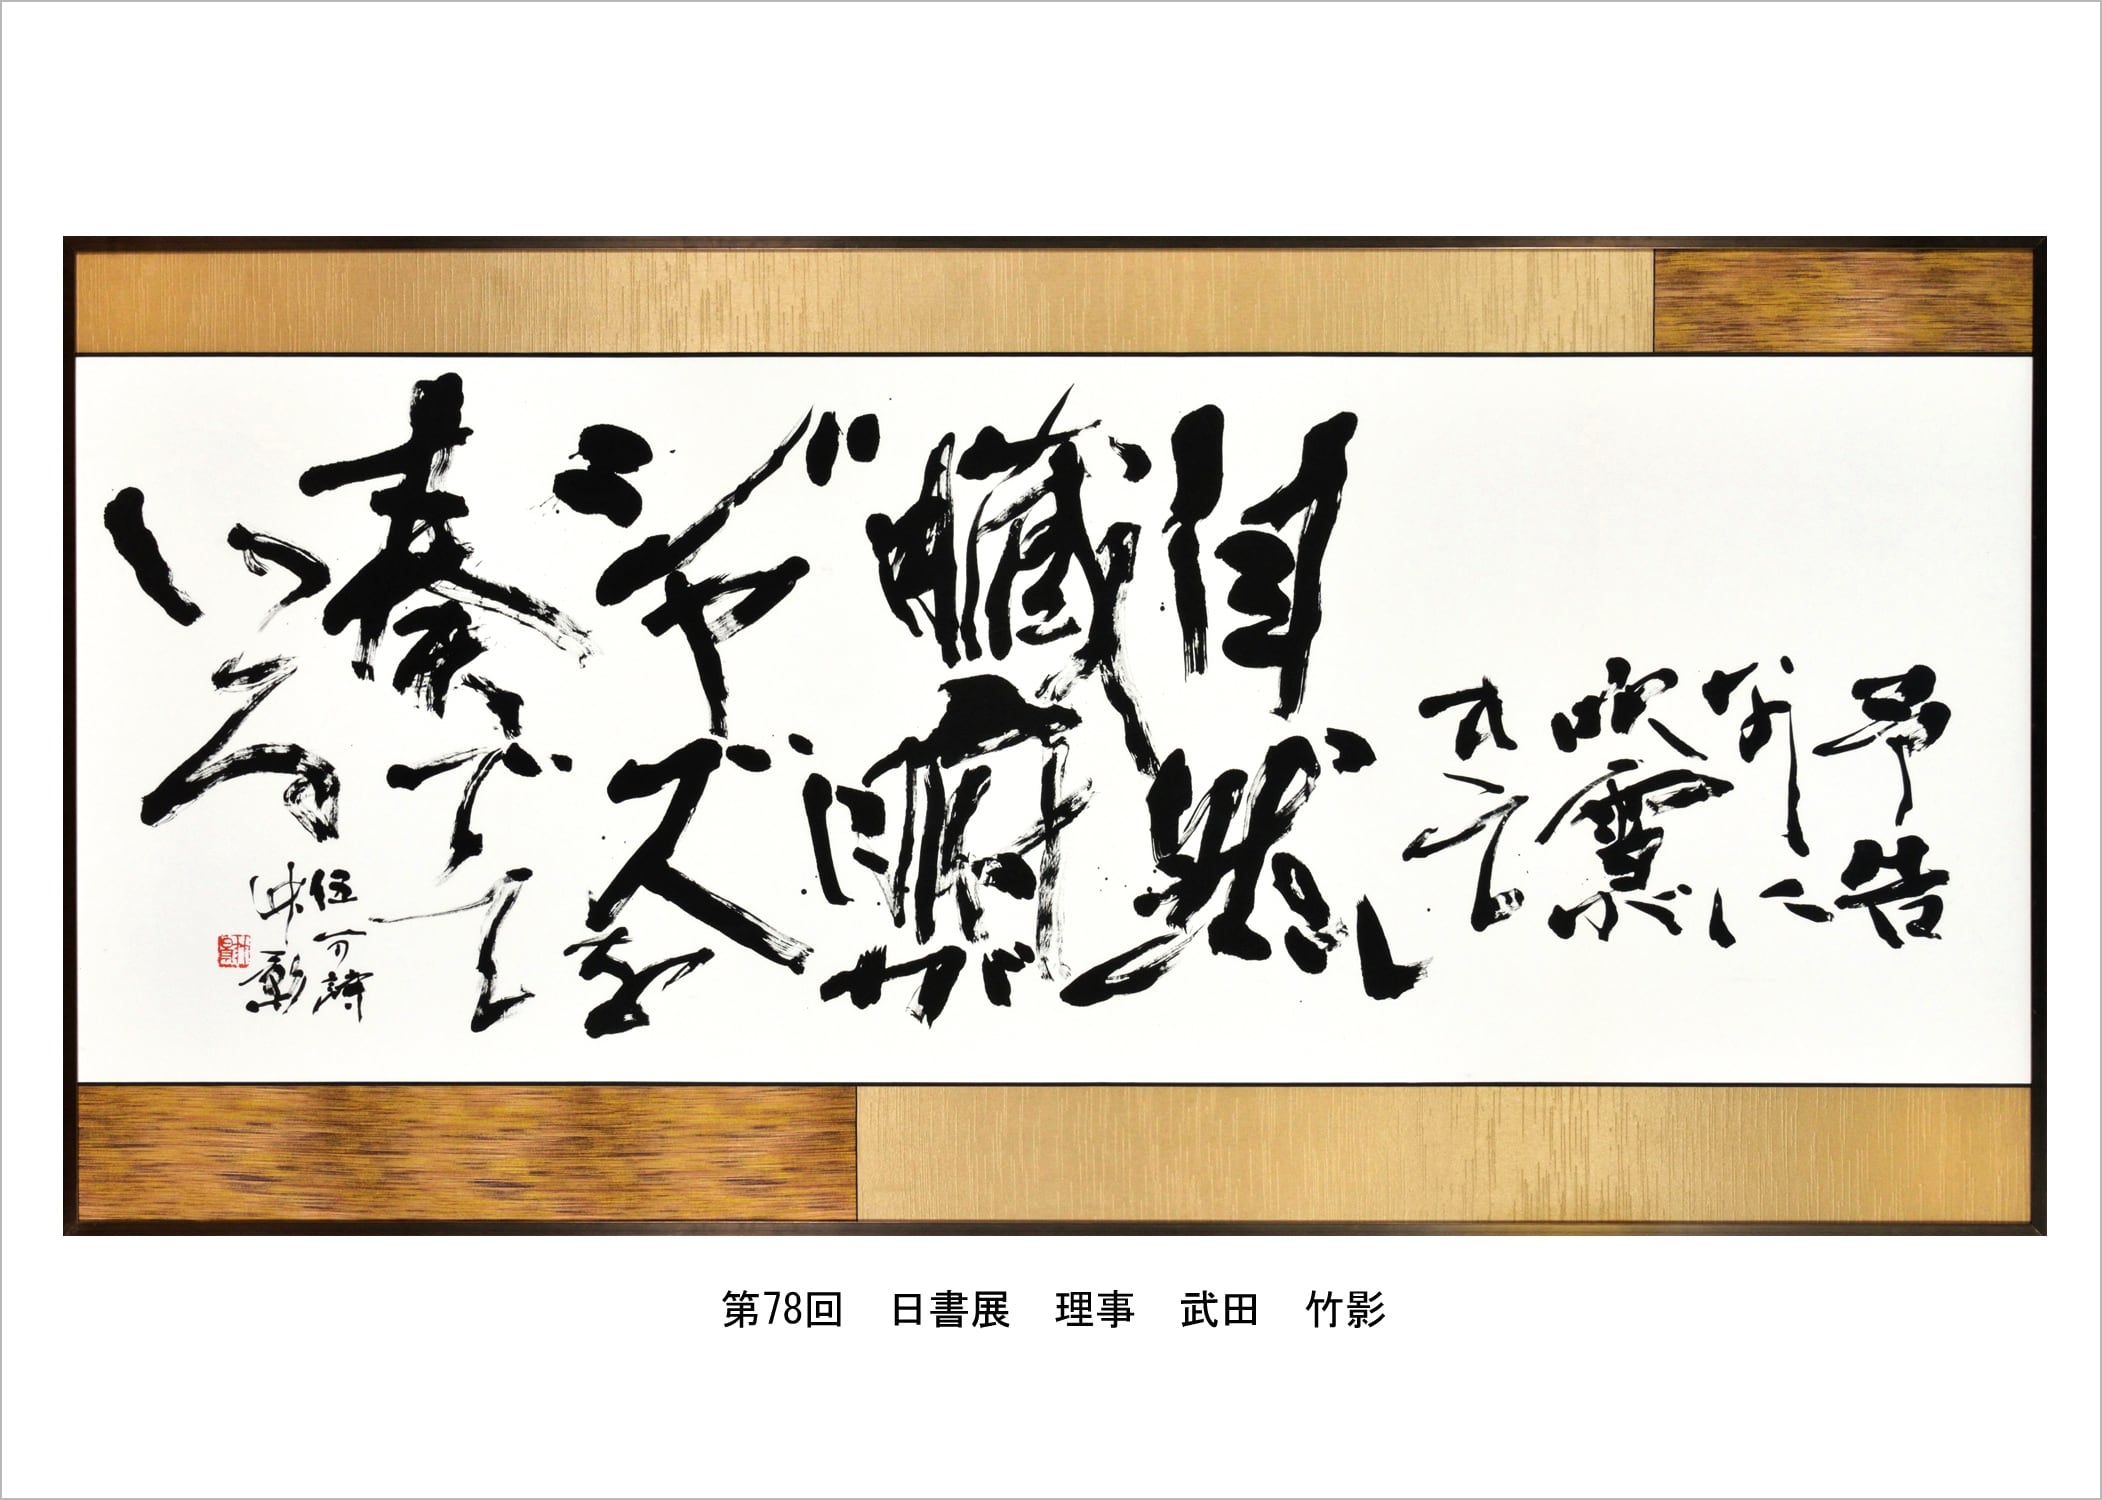 予告
なしに
吹雪が
自然
臓腑が
ジャズを
奏でて
いる
竹影
第78回　日書展　理事　武田　竹影